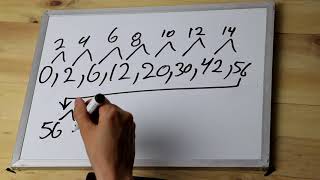 2 4 6 8 10 12 14
0,2,6,12,20,30,42,56
56